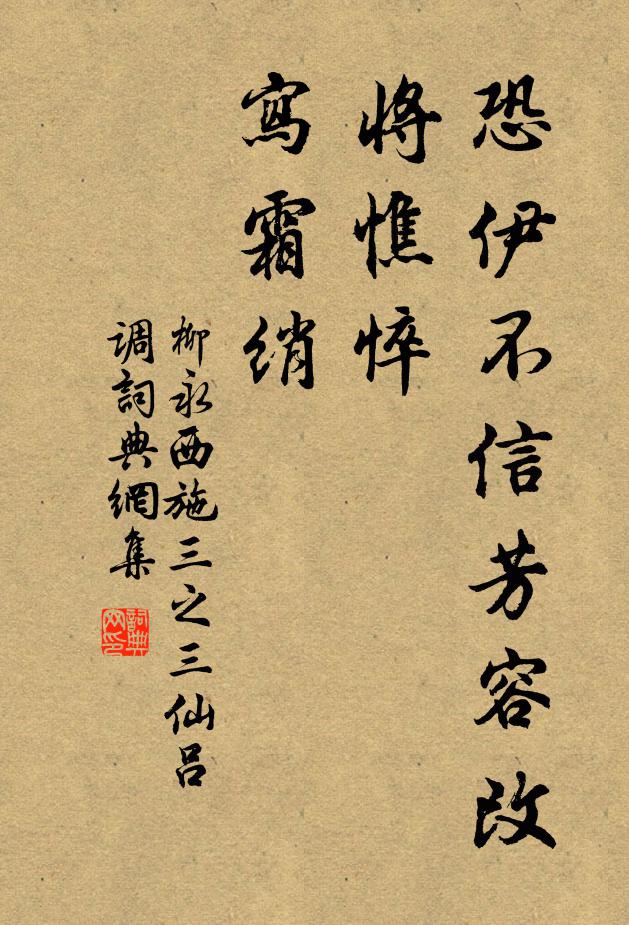 恐伊不信芳容改
將憔悴
寫霜綃
柳永西施三之三仙呂
调詞典網集
詞典网印